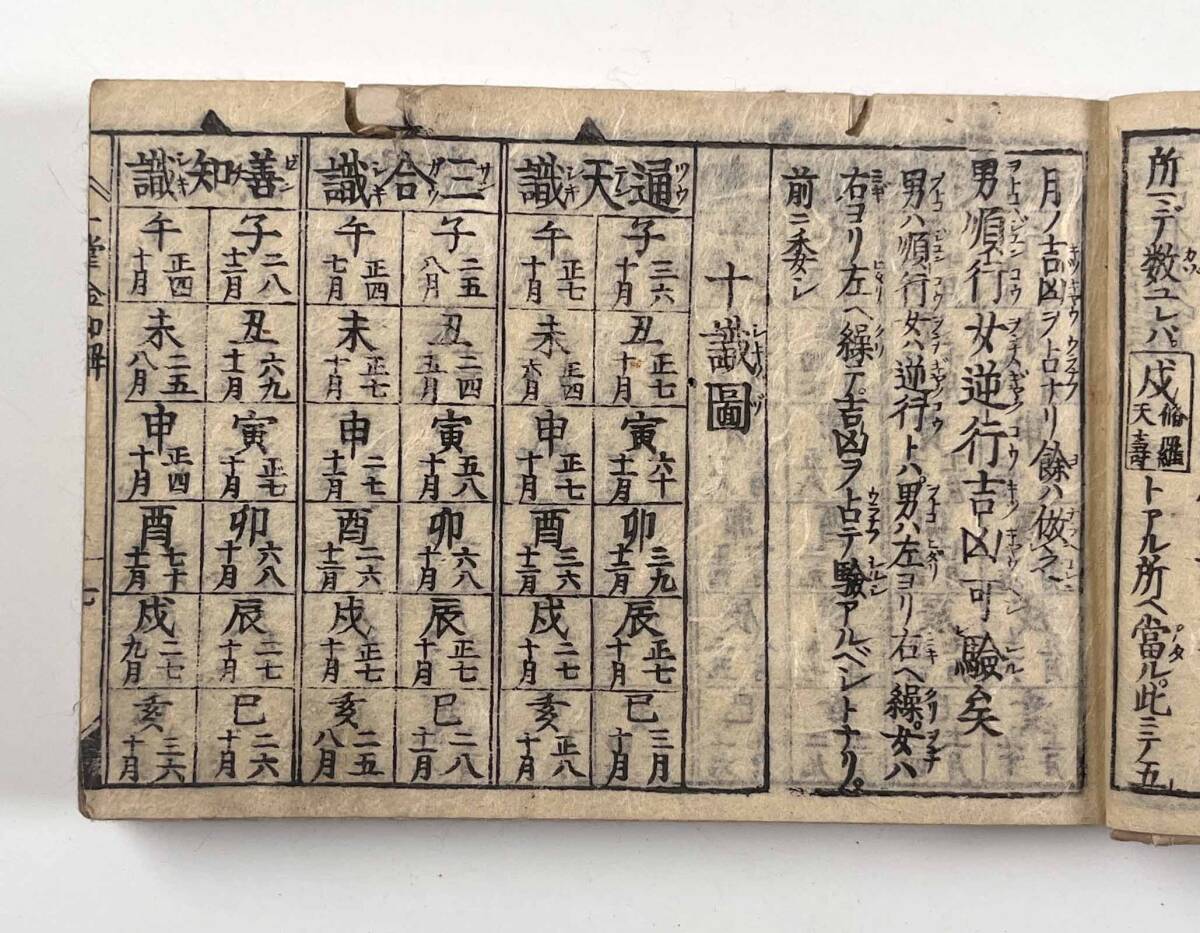 所マデ数ユレバ戌脩羅天壽トアル所ヘ當ル。此ミテ五
月ノ吉凶ヲ占ナリ餘ハ倣之
男順行女逆行吉凶可驗矣
男ハ順行女ハ逆行トハ。男ハ左ヨリ右ヘ繰。女ハ
右ヨリ左ヘ繰テ。吉凶ヲ占テ驗アルベシトナリ。
前ニ委シ
十識圖
通天識
子 三六十二月
丑 正七十月
寅 六十十一月
卯 三九十二月
辰 正七十月
巳 三月十月
午 正七十月
未 正四六月
申 正七十月
酉 三六十二月
戌 二七十月
亥 正八十月
三合識
子 二五八月
丑 二四五月
寅 五八十一月
卯 六八十二月
辰 正七十月
巳 二八十一月
午 正四七月
未 正七十月
申 二七十二月
酉 二六十二月
戌 正七十月
亥 二五八月
善知識
子 二八十二月
丑 六九十一月
寅 正七十一月
卯 六八十月
辰 二七十月
巳 二六十月
午 正四十月
未 二五八月
申 正四十月
酉 七十十二月
戌 二七九月
亥 三六十月